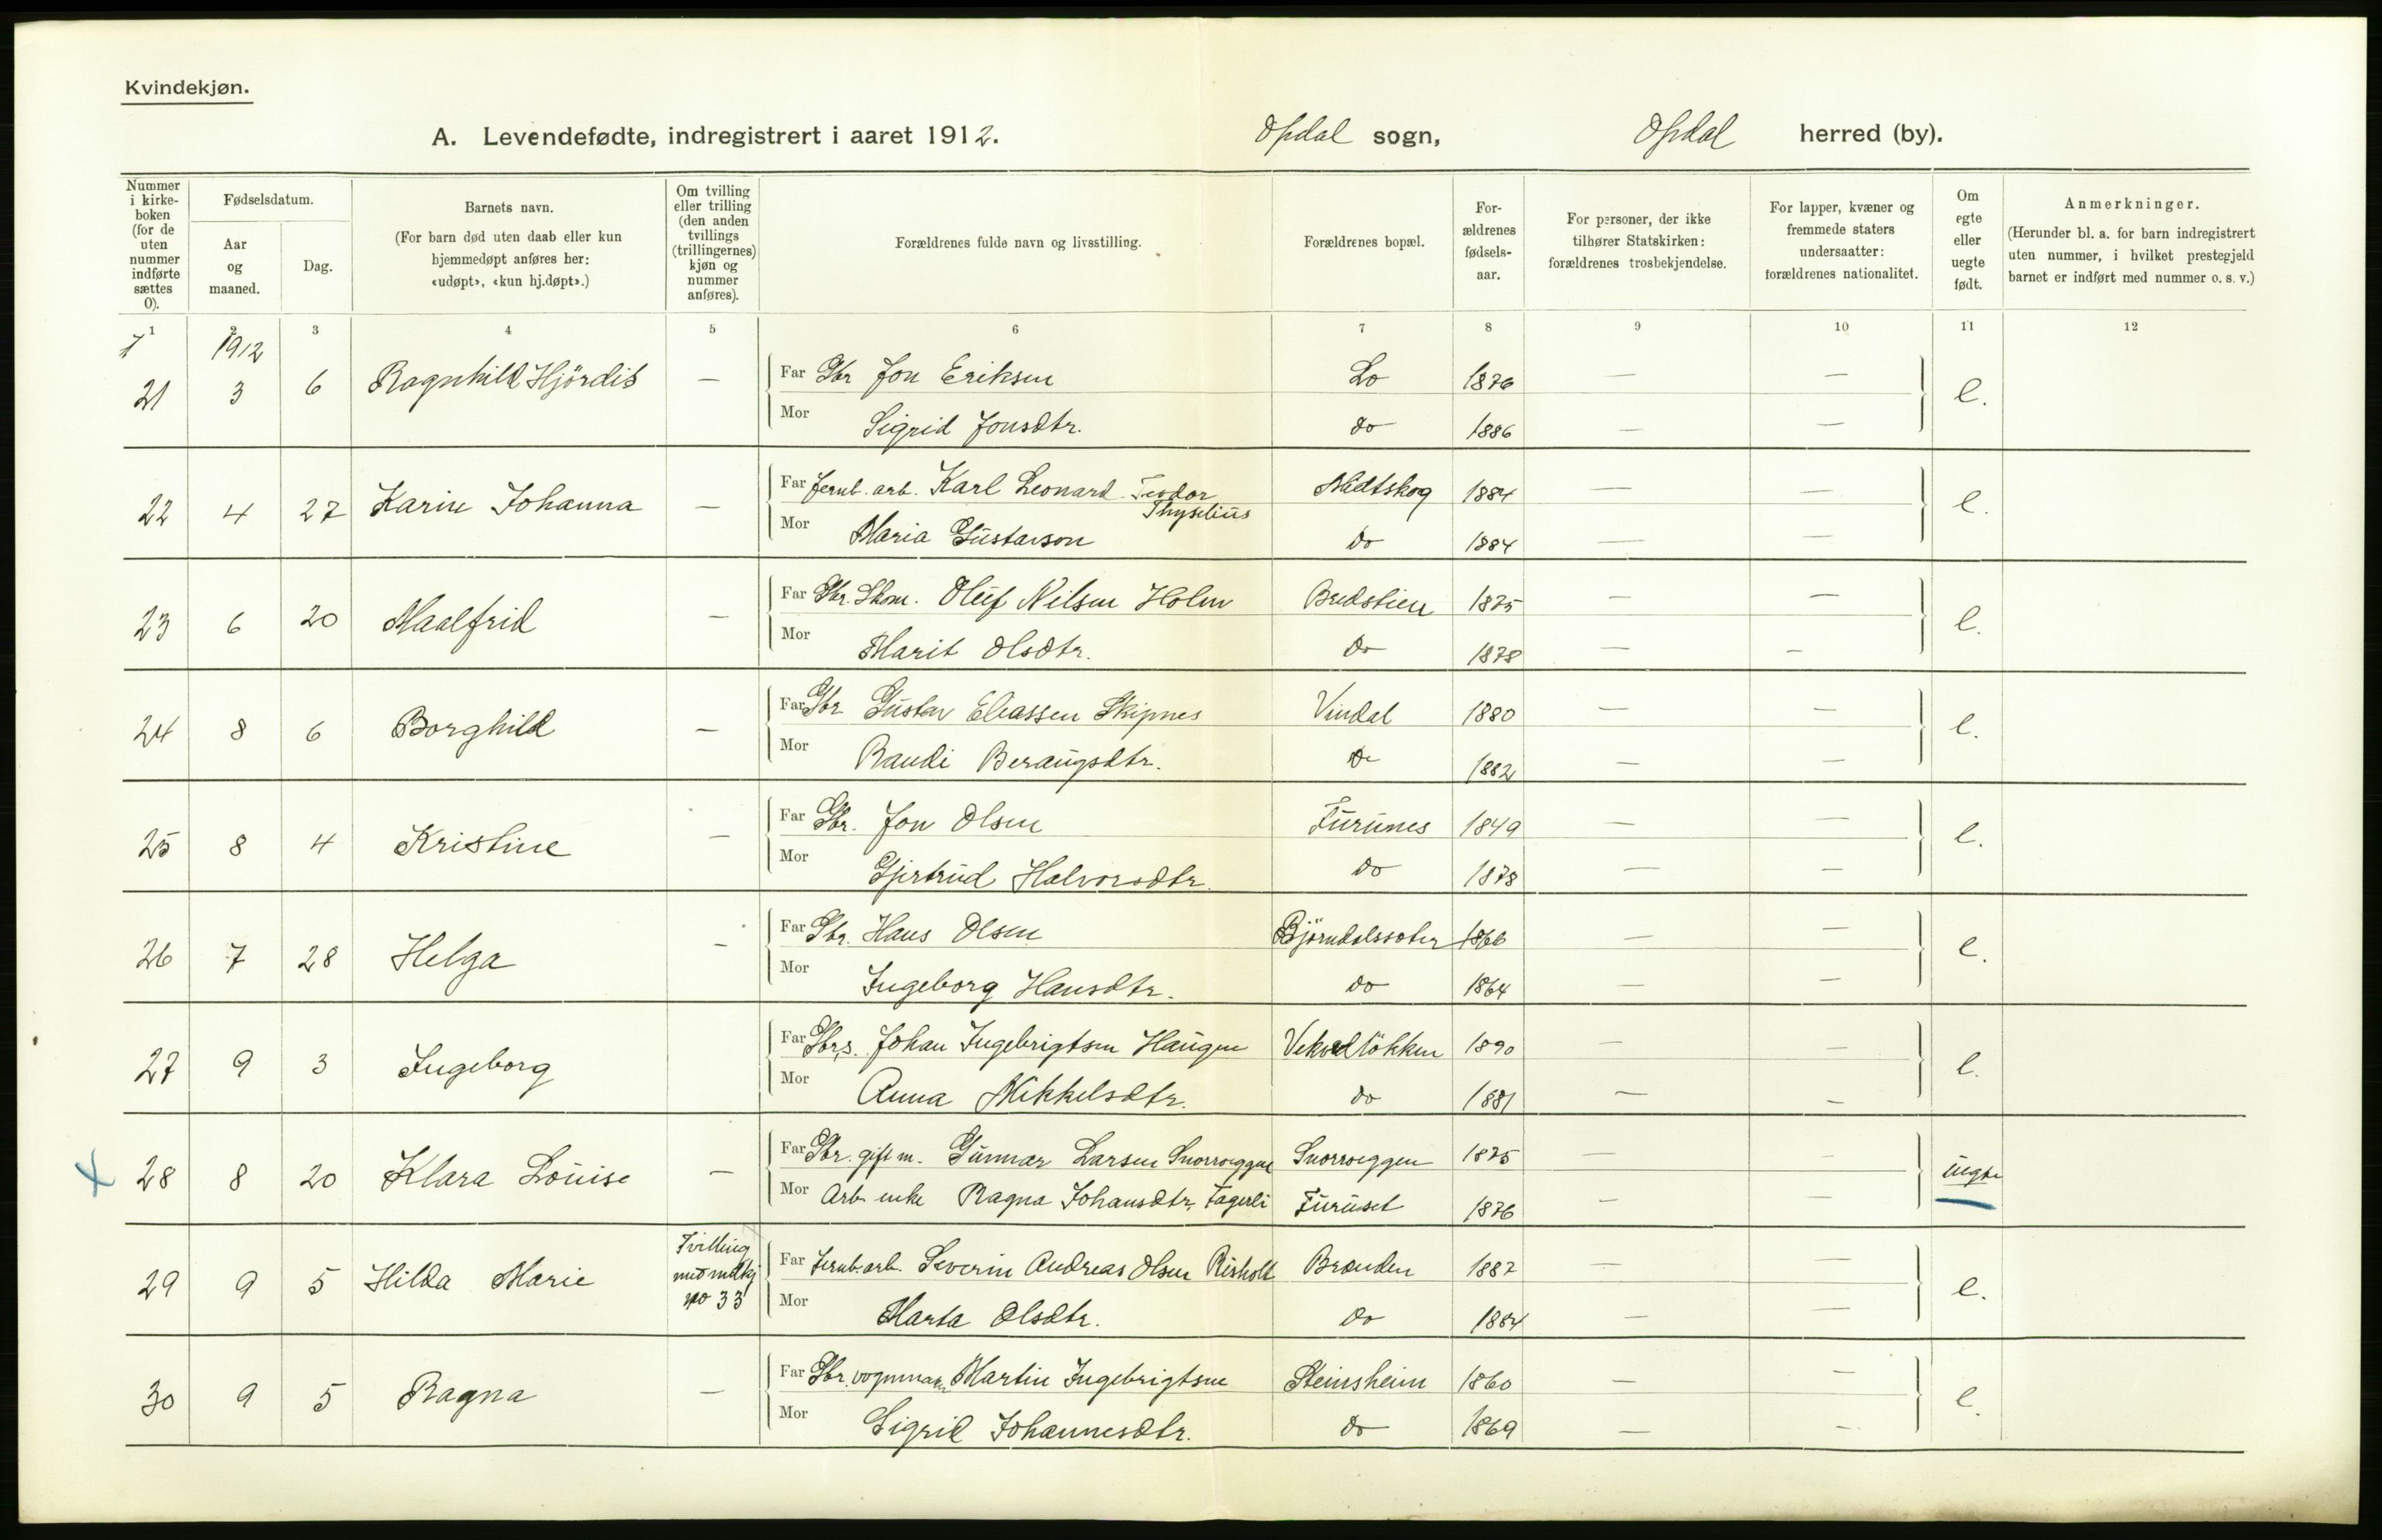 Kvindekjøn.
A. Levendefødte, indregistrert i aaret 1912. Opdal sogn, Opdal herred (by).
Nummer i kirke-boken (for de uten nummer indførte sættes 0).
Fødselsdatum.
Aar og maaned.
Dag.
Barnets navn.
(For barn død uten daab eller kun hjemmedøpt anføres her: «udøpt», «kun hj.døpt».)
Om tvilling eller trilling (den anden tvillings (trillingernes) kjøn og nummer anføres).
Forældrenes fulde navn og livsstilling.
Forældrenes bopæl.
For-ældrenes fødsels-aar.
For personer, der ikke tilhører Statskirken: forældrenes trosbekjendelse.
For lapper, kvæner og fremmede staters undersaatter: forældrenes nationalitet.
Om egte eller uegte født.
Anmerkninger.
(Herunder bl. a. for barn indregistrert uten nummer, i hvilket prestegjeld barnet er indført med nummer o. s. v.)
1 2 3 4 5 6 7 8 9 10 11 12
1912
21 3 6 Ragnhild Hjördis — Far Gbr Jon Eriksen Lo 1876 — — e.
Mor Sigrid Jonsdtr. do 1886 — —
22 4 27 Karin Johanna — Far Jernb. arb. Karl Leonard Teodor Thyselius Midtskog 1884 — — e.
Mor Maria Gustavson do 1884 — —
23 6 20 Maalfrid — Far Gbr. Skom. Oluf Nilsen Holm Bredstien 1875 — — e.
Mor Marit Olsdtr. do 1878 — —
24 8 6 Borghild — Far Gbr Gustav Eliassen Skipnes Vindal 1880 — — e.
Mor Randi Beraugsdtr. do 1882 — —
25 8 4 Kristine — Far Gbr. Jon Olsen Furunes 1849 — — e.
Mor Gjertrud Halvorsdtr. do 1878 — —
26 7 28 Helga — Far Gbr. Hans Olsen Björndalssæter 1866 — — e.
Mor Ingeborg Hansdtr. do 1864 — —
27 9 3 Ingeborg Far Gbrs. Johan Ingebrigtsen Haugen Vekvelløkken 1890 — — e.
Mor Anna Mikkelsdtr. do 1881 — —
28 8 20 Klara Louise — Far Gbr. gift m. Gunnar Larsen Snorroeggen Snorroeggen 1875 — — uegte
Mor Arb enke Ragna Johansdtr. Fagerli Furuset 1876 — —
29 9 5 Hilda Marie Tvilling med mdkj no 33 Far Jernb. arb. Severin Andreas Olsen Risholt Brænden 1887 — — e.
Mor Marta Olsdtr. do 1884 — —
30 9 5 Ragna — Far Gbr. vognmann Martin Ingebrigtsen Steinsheim 1860 — — e.
Mor Sigrid Johannesdtr. do 1869 — —